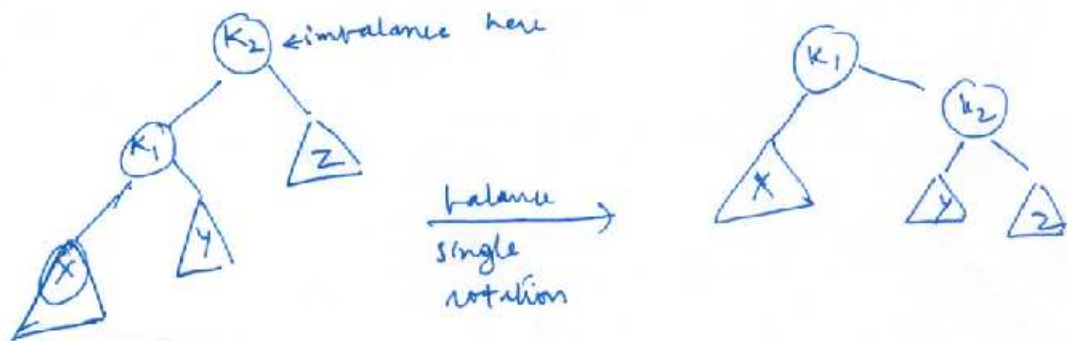 K2 ←imbalance here
K1
Z
X
Y
balance
single
rotation
K1
K2
X
Y
Z